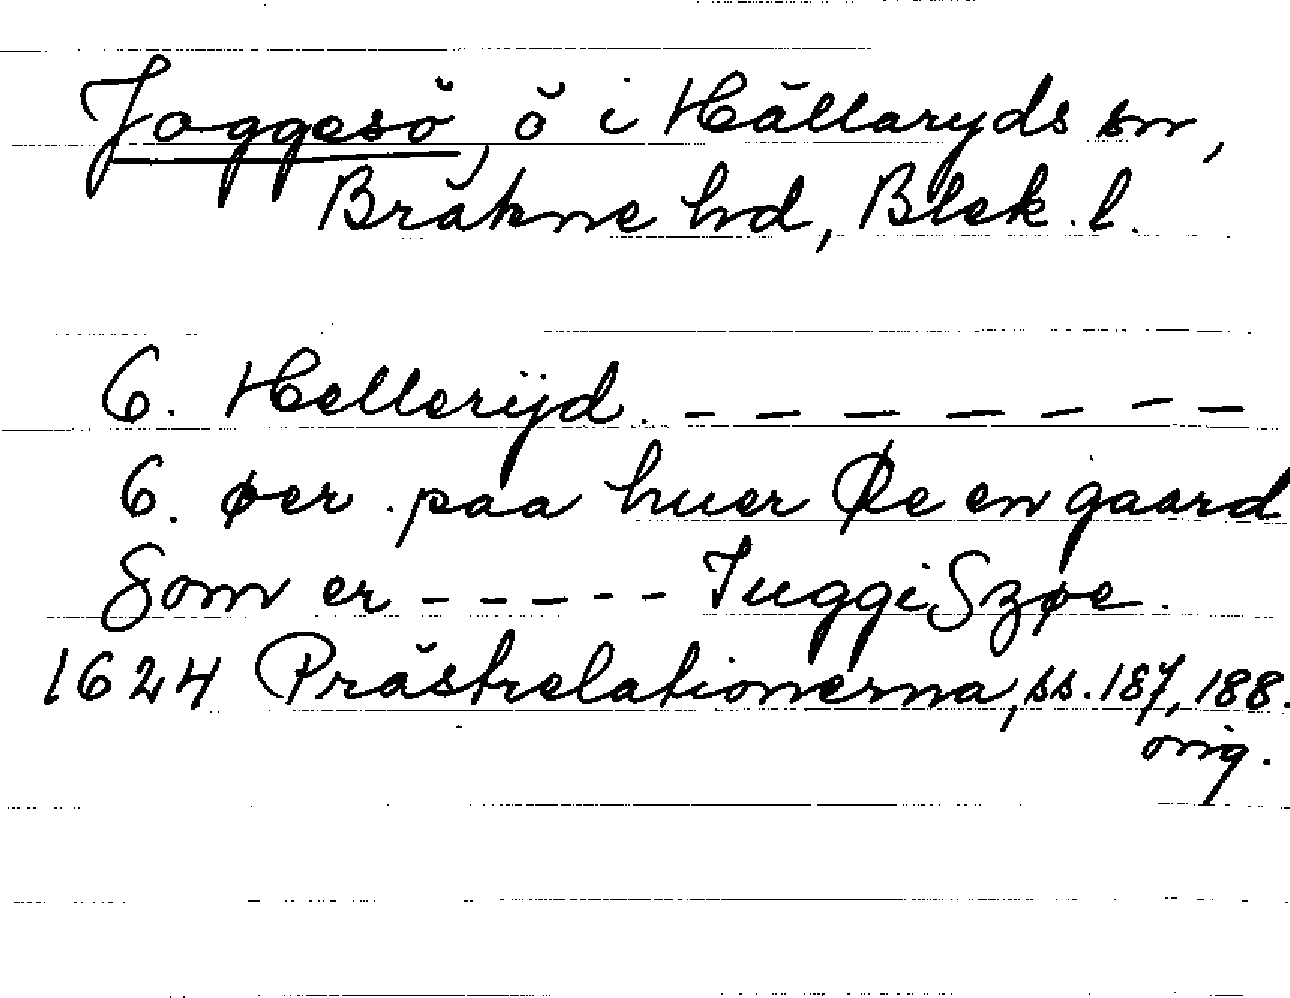 Joggesö, ö i Hällaryds sn,
Bräkne hd, Blek. l.
6. Hellerijd. – – – – – – –
6. øer. paa huer Øe en gaard
Som er – – – – – JuggiSzøe.
1624 Prästrelationerna, ss. 187, 188.
orig.